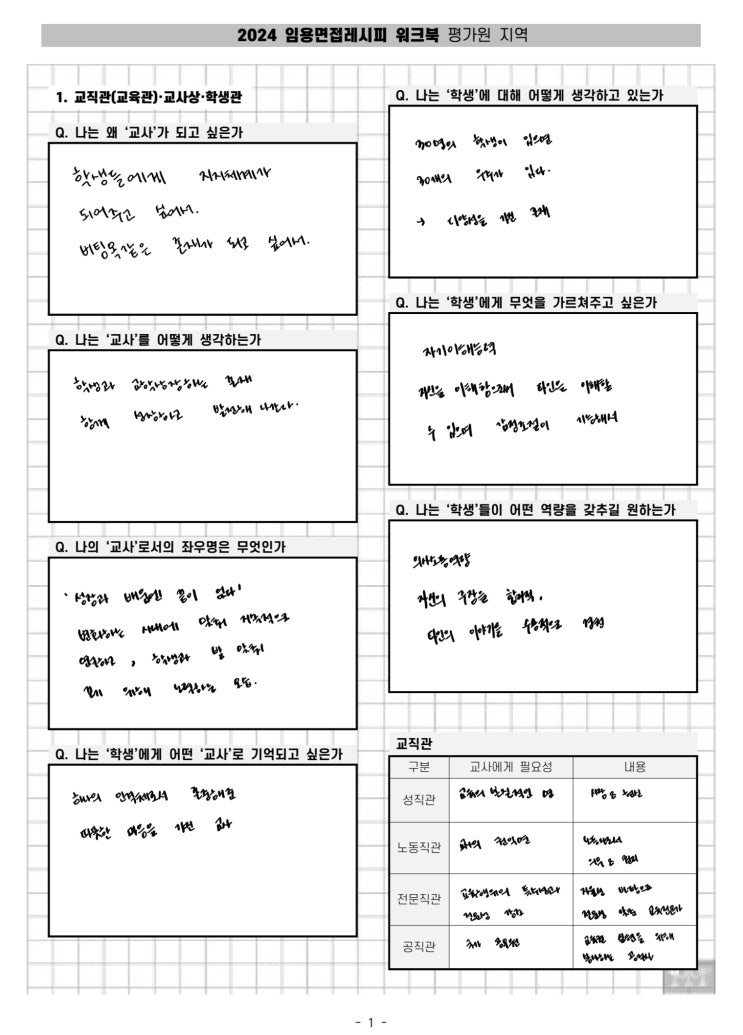 2024 임용면접레시피 워크북 평가원 지역
1. 교직관(교육관)·교사상·학생관
Q. 나는 왜 '교사'가 되고 싶은가
학생들에게 지지체계가
되어주고 싶어서.
버팀목같은 존재가 되고 싶어서.
Q. 나는 '교사'를 어떻게 생각하는가
학생과 교학상장하는 존재
함께 성장하고 발전해 나간다.
Q. 나의 '교사'로서의 좌우명은 무엇인가
'성장과 배움엔 끝이 없다'
변화하는 시대에 맞춰 적극적으로
연구하고, 학생과 발 맞춰
위해 노력하는 모습.
Q. 나는 '학생'에게 어떤 '교사'로 기억되고 싶은가
하나의 인격체로서 존중해준
따뜻한 마음을 가진 교사
Q. 나는 '학생'에 대해 어떻게 생각하고 있는가
30명의 학생이 있으면
30개의 우주가 있다.
→ 다양성을 가진 존재
Q. 나는 '학생'에게 무엇을 가르쳐주고 싶은가
자기이해능력
자신을 이해함으로써 타인을 이해할
수 있으며 감정조절이 가능해서
Q. 나는 '학생'들이 어떤 역량을 갖추길 원하는가
의사소통역량
자신의 주장을 합리적,
타인의 이야기를 수용적으로 경청
교직관
구분 교사에게 필요성 내용
성직관 교육의 본질적인 면 사랑 & 헌신
노동직관 교사의 권익면 노동자로서
의무 & 권리
전문직관 교육행위의 특수성과 자율성 바탕으로
전문성 강조 전문성 있는 교육전문가
공직관 국가 공무원 교육권 실현을 위해
봉사하는 공직자
- 1 -